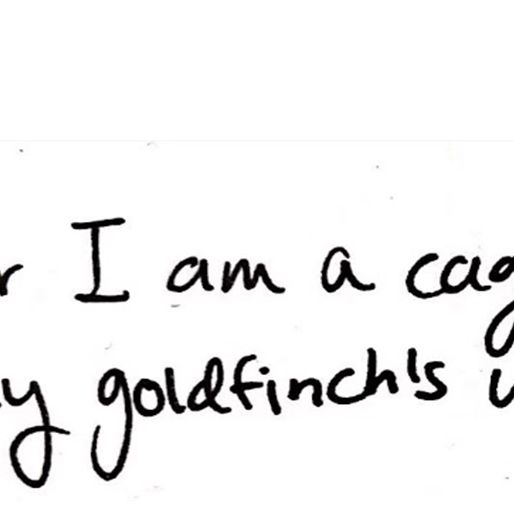 r I am a cag
y goldfinch's